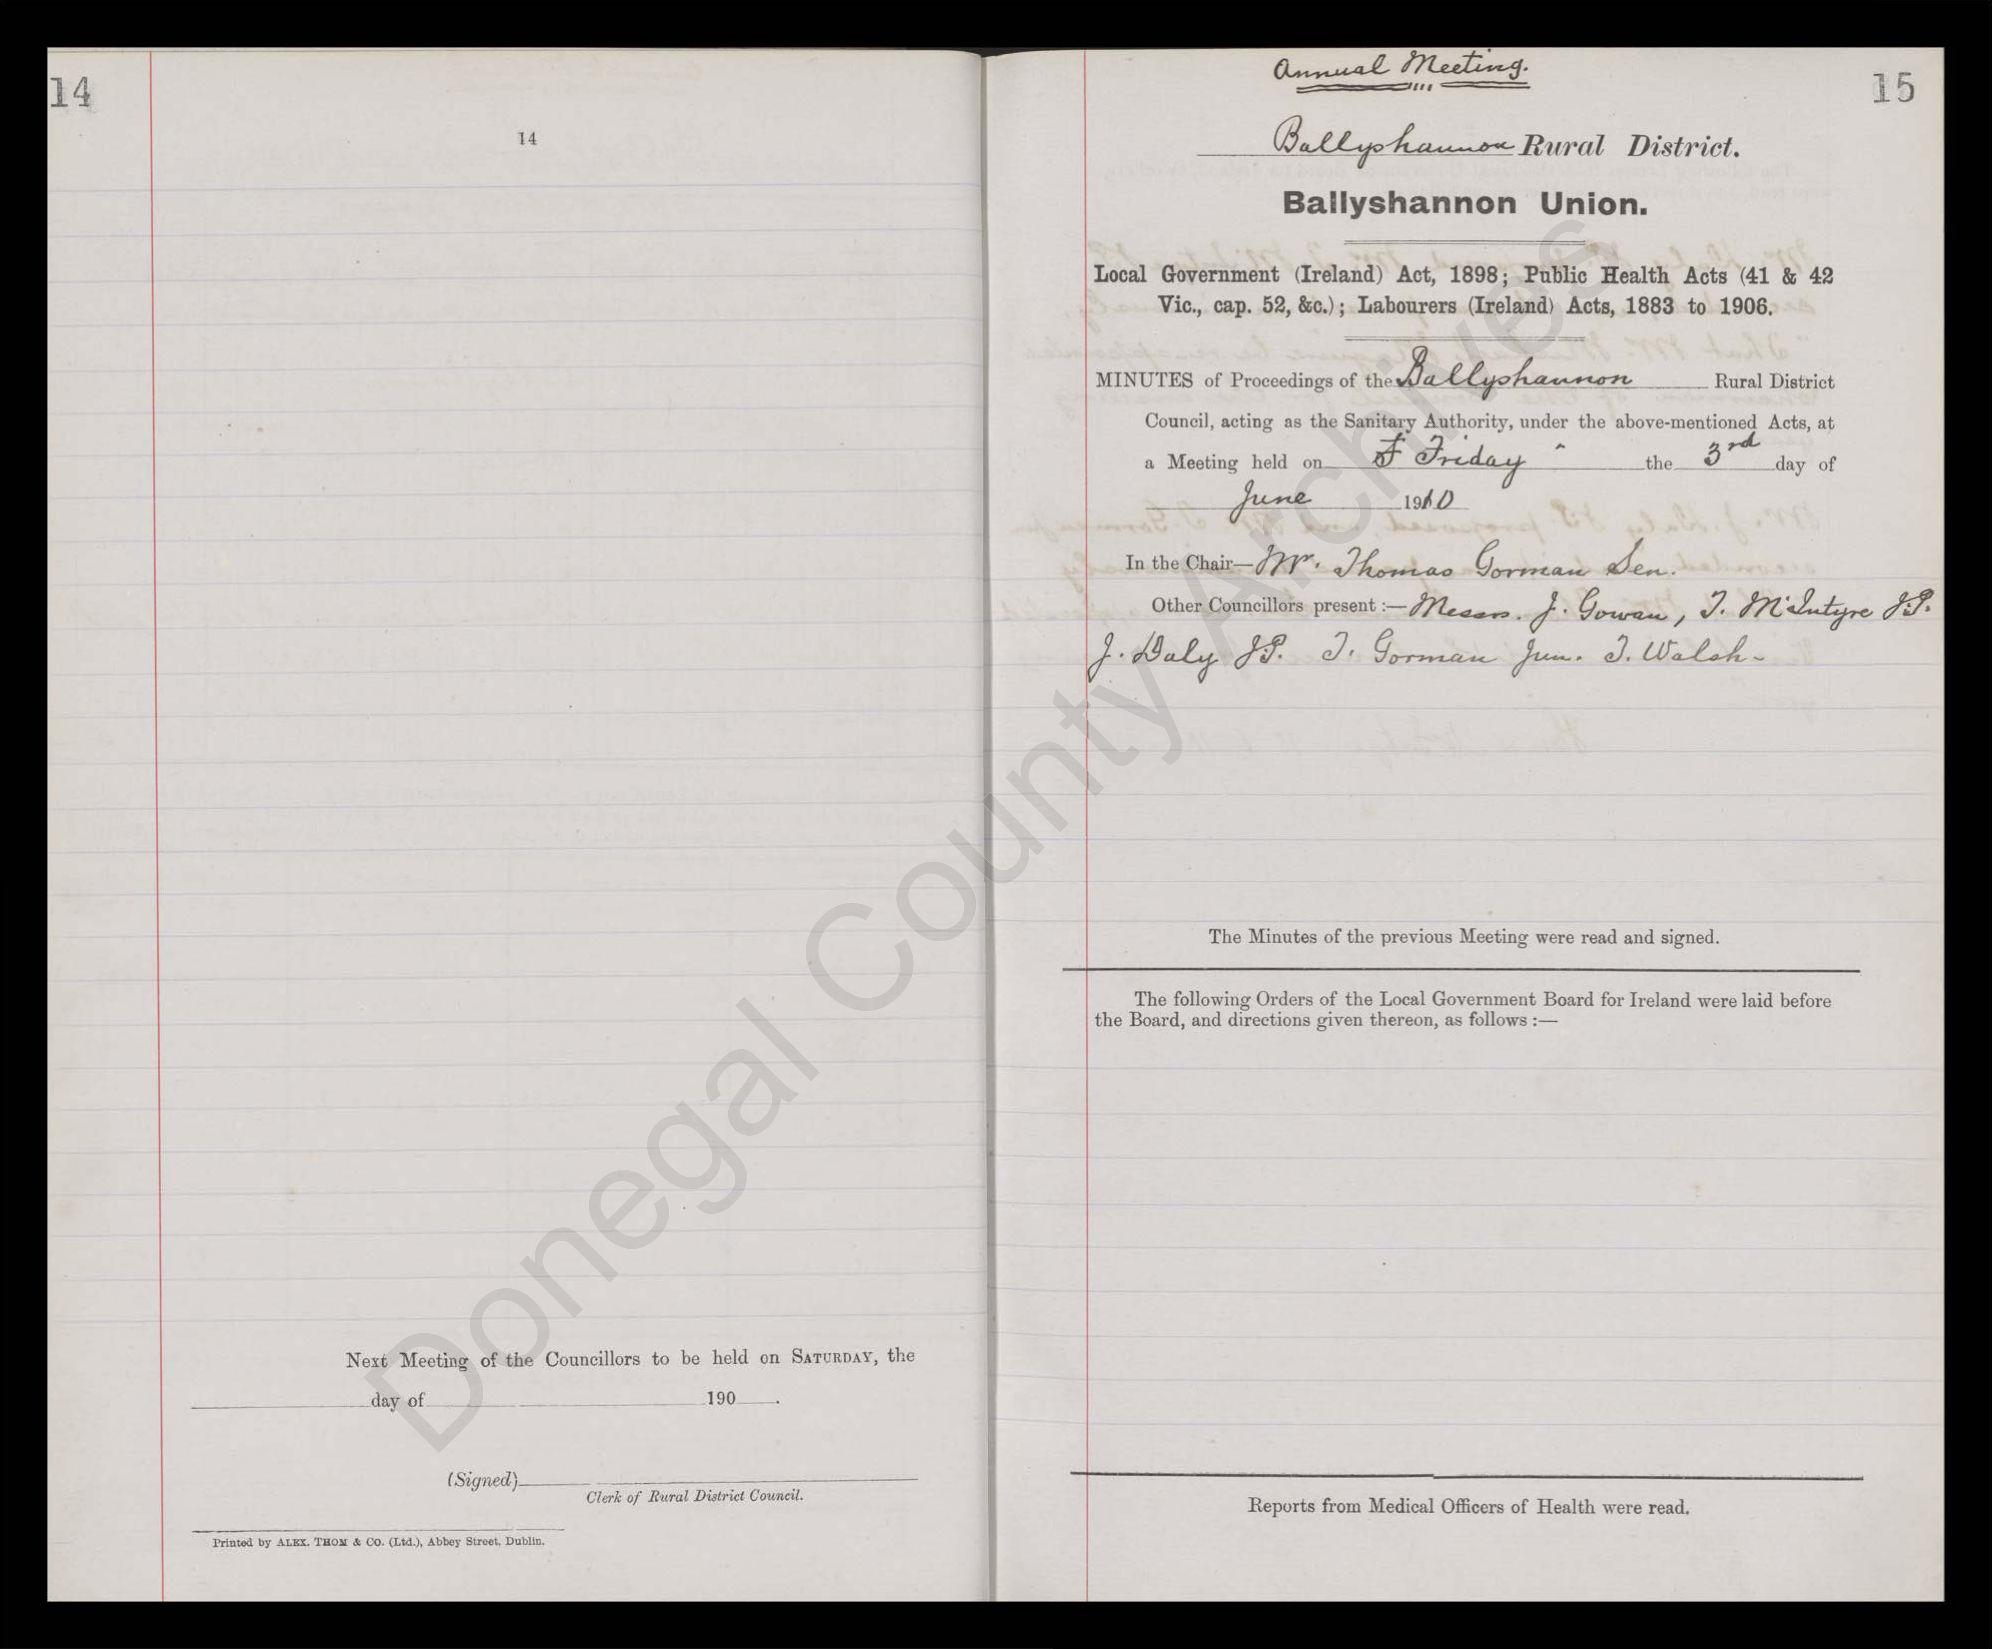 14
14
Next Meeting of the Councillors to be held on SATURDAY, the
day of 190 .
(Signed)
Clerk of Rural District Council.
Printed by ALEX. THOM & CO. (Ltd.), Abbey Street, Dublin.
Annual Meeting.
15
Ballyshannon Rural District.
Ballyshannon Union.
Local Government (Ireland) Act, 1898; Public Health Acts (41 & 42
Vic., cap. 52, &c.); Labourers (Ireland) Acts, 1883 to 1906.
MINUTES of Proceedings of the Ballyshannon Rural District
Council, acting as the Sanitary Authority, under the above-mentioned Acts, at
a Meeting held on Friday the 3rd day of
June 1910
In the Chair—Mr. Thomas Gorman Sen.
Other Councillors present :—Messrs. J. Gowan, T. McIntyre J.P.
J. Daly JP. T. Gorman Jun. T. Walsh-
The Minutes of the previous Meeting were read and signed.
The following Orders of the Local Government Board for Ireland were laid before
the Board, and directions given thereon, as follows :—
Reports from Medical Officers of Health were read.
Donegal County Archives